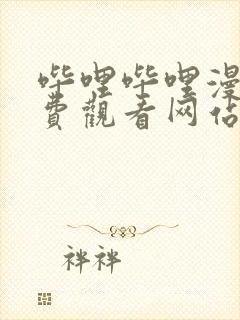 哔哩哔哩漫
費觀看网佔
袢袢